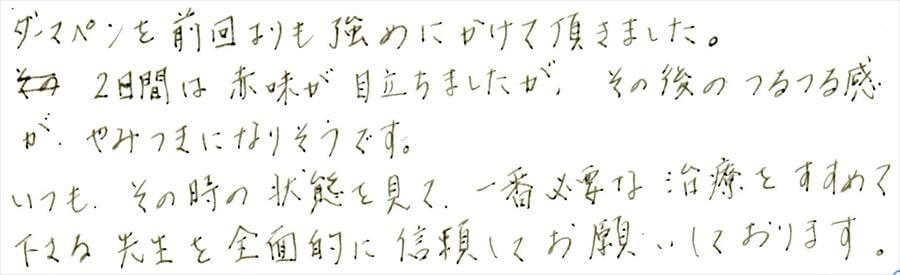 ダーマペンを前回よりも強めにかけて頂きました。
2日間は赤味が目立ちましたが、その後のつるつる感
が、やみつきになりそうです。
いつも、その時の状態を見て、一番必要な治療をすすめて
下さる先生を全面的に信頼してお願いしております。